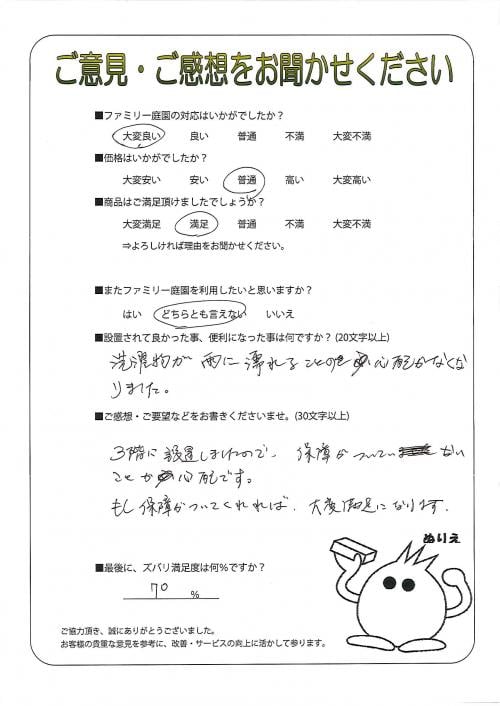 ご意見・ご感想をお聞かせください
■ファミリー庭園の対応はいかがでしたか？
大変良い 良い 普通 不満 大変不満
■価格はいかがでしたか？
大変安い 安い 普通 高い 大変高い
■商品はご満足頂けましたでしょうか？
大変満足 満足 普通 不満 大変不満
⇒よろしければ理由をお聞かせください。
■またファミリー庭園を利用したいと思いますか？
はい どちらとも言えない いいえ
■設置されて良かった事、便利になった事は何ですか？(20文字以上)
洗濯物が雨に濡れることの心配がなくな
りました。
■ご感想・ご要望などをお書きくださいませ。(30文字以上)
3階に設置しましたので、保障がついてない
ことが心配です。
もし保障がついてくれれば、大変満足になります.
ぬりえ
■最後に、ズバリ満足度は何%ですか？
70 %
ご協力頂き、誠にありがとうございました。
お客様の貴重な意見を参考に、改善・サービスの向上に活かして参ります。